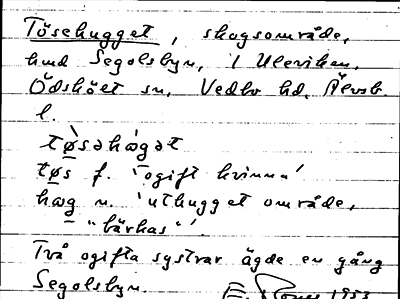 Tösehugget, skogsområde,
hmd Segolsbyn, i Uleviken,
Ödskölt sn, Vedbo hd, Älvsb.
l.
tø̀səhàgət
tøs f. 'ogift kvinna'
hag n. 'uthugget område,
"bärkas"'.
Två ogifta systrar ägde en gång
Segolsbyn. 1953